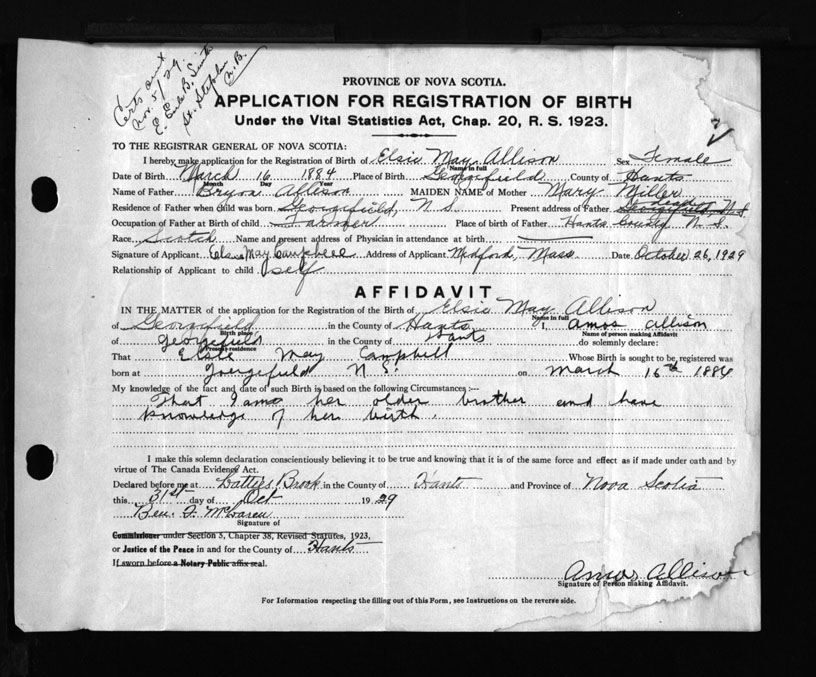 Certs sent
Nov. 5/29.
E. Eula B. Smith
St. Stephen
N. B.
PROVINCE OF NOVA SCOTIA.
APPLICATION FOR REGISTRATION OF BIRTH
Under the Vital Statistics Act, Chap. 20, R. S. 1923.
TO THE REGISTRAR GENERAL OF NOVA SCOTIA:
I hereby make application for the Registration of Birth of Elsie May Allison Sex Female
Name in full
Date of Birth March 16 1884 Place of Birth Georgefield County of Hants
Month Day Year
Name of Father Byron Allison MAIDEN NAME of Mother Mary Miller
dead
Residence of Father when child was born Georgefield, N S Present address of Father Georgefield, N S
Occupation of Father at Birth of child Farmer Place of birth of Father Hants County N. S.
Race Scotch Name and present address of Physician in attendance at birth
Signature of Applicant Elsie May Campbell Address of Applicant Medford, Mass. Date October 26, 1929
Relationship of Applicant to child self
AFFIDAVIT
IN THE MATTER of the application for the Registration of the Birth of Elsie May Allison
Name in full
of Georgefield in the County of Hants I, Amos Allison
Birth place Name of person making Affidavit
of Georgefield in the County of Hants do solemnly declare:
Present residence
That Elsie May Campbell Whose Birth is sought to be registered was
born at Georgefield N S. on March 16th 1884
My knowledge of the fact and date of such Birth is based on the following Circumstances :—
That I am her older brother and have
knowledge of her birth.
I make this solemn declaration conscientiously believing it to be true and knowing that it is of the same force and effect as if made under oath and by
virtue of The Canada Evidence Act.
Declared before me at Latties Brook in the County of Hants and Province of Nova Scotia
this 31st day of Oct 1929
Ben. F.
Signature of
Commissioner under Section 5, Chapter 38, Revised Statutes, 1923,
or Justice of the Peace in and for the County of Hants
If sworn before a Notary Public affix seal.
Amos Allison
Signature of Person making Affidavit.
For Information respecting the filling out of this Form, see Instructions on the reverse side.